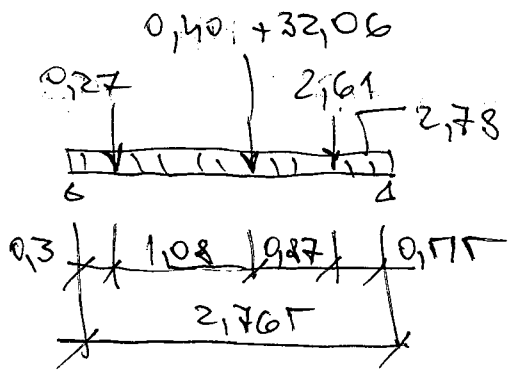 0,40 + 32,06
0,27 2,61
2,78
0,3 1,08 0,87 0,515
2,765